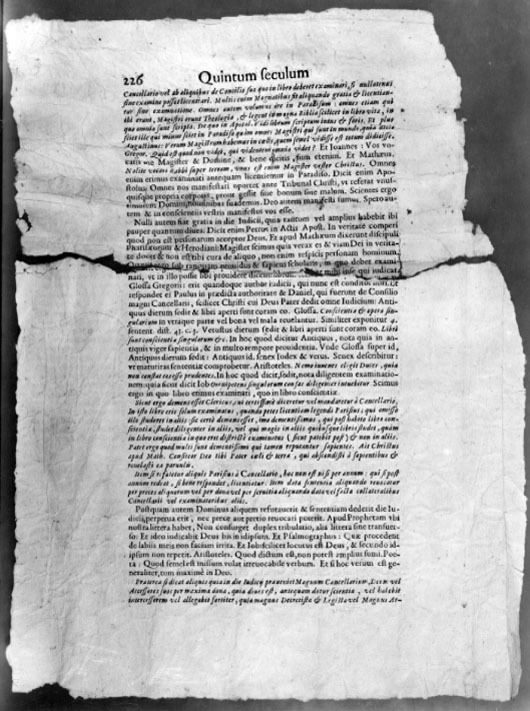 226 Quintum seculum
Cancellario vel ab aliquibus de Concilio suo quo in libro deberet examinari, si nullatenus
sine examine posset licentiari. Multis enim Magnatibus sit aliquando gratia & licentian-
tur sine examinatione. Omnes autem volumus ire in Paradisum: omnes etiam qui
ibi erunt, Magistri erunt Theologiæ, & legent in magna Biblia scilicet in libro vitæ, in
quo omnia sunt scripta. De quo in Apocal. Vidi librum scriptum intus & foris. Et plus
sciet ille qui minor sciet in Paradiso quàm omnes Magistri qui sunt in mundo, quia dicit
Augustinus: Verum Magistrum habemus in cœlis, quem semel vidisse est totum didicisse.
Gregor. Quid est quod non videt, qui videntem omnia videt? Et Ioannes: Vos vo-
catis me Magister & Domine, & bene dicitis, sum etenim. Et Matthæus.
Nolite vocari Rabbi super terram, vnus est enim Magister vester Christus. Omnes
enim erimus examinati antequam licentiemur in Paradiso. Dicit enim Apo-
stolus: Omnes nos manifestari oportet ante Tribunal Christi, vt referat vnus-
quisque propria corporis, prout gessit siue bonum siue malum. Scientes ergo
timorem Domini, hominibus suademus. Deo autem manifesti sumus. Spero au-
tem & in conscientiis vestris manifestos vos esse.
Nulli autem fiat gratia in die Iudicij, quia tantum vel amplius habebit ibi
pauper quantum diues. Dicit enim Petrus in Actis Apost. In veritate comperi
quod non est personarum acceptor Deus. Et apud Matthæum dixerunt discipuli
Pharisæorum & Herodiani: Magister scimus quia verax es & viam Dei in verita-
te doces & non est tibi cura de aliquo, non enim respicis personam hominum.
nari, vt in illo posset
Glossa Gregorii: erit quandoque author iudicij, qui nunc est conditor
respondet ei Paulus in prædicta authoritate & Daniel, qui fuerunt de Consilio
magni Cancellarii, scilicet Christi cui Deus Pater dedit omne Iudicium: Anti-
quus dierum sedit & libri aperti sunt coram eo. Glossa. Conscientiæ & opera sin-
gulorum in vtraque parte vel bona vel mala reuelantur. Similiter exponitur 4.
sentent. dist. 43. c. 5. Vetustus dierum sedit & libri aperti sunt coram eo. Libri
sunt conscientiæ singulorum &c. In hoc quod dicitur Antiquus, nota quia in an-
tiquis viget sapientia, & in multo tempore prouidentia. Vnde Glossa super id,
Antiquus dierum sedit: Antiquus id, senex Iudex & verus. Senex describitur:
vt maturitas sententiæ comprobetur. Aristoteles. Nemo iuuenes eligit Duces, quia
non constat eos esse prudentes. In hoc quod dicit, sedit, nota diligentem examinatio-
nem: quia sicut dicit Iob Omnipotens singulorum causas diligenter intuebitur. Scimus
ergo in quo libro erimus examinati, quo in libro conscientiæ.
Sicut ergo demens esset Clericus, cui certissimè diceretur vel mandaretur à Cancellario,
In isto libro eris solum examinatus, quando petes licentiam legendi Parisius; qui omisso
illo studeret in aliis: sic certè dementissimus, imo dementissimus, qui post habito libro con-
scientiæ, studet diligenter in aliis, vel qui magis in aliis quibusque libris studet, quàm
in libro conscientiæ in quo erit districtè examinatus (sicut patebit post) & non in aliis.
Patet ergo quod multi sunt dementissimi qui tamen reputantur sapientes. Ait Christus
apud Math. Confiteor Deo tibi Pater cœli & terræ, qui abscondisti à sapientibus &
reuelasti ea paruulis.
Item si refutetur aliquis Parisius à Cancellario, hoc non est nisi per annum: qui si post
annum redeat, si bene respondet, licentiatur. Item data sententia aliquando reuocatur
per preces aliquorum vel per dona vel per seruitia aliquando data vel facta collateralibus
Cancellarii vel examinatoribus aliis.
Postquam autem Dominus aliquem refutauerit & sententiam dederit die Iu-
dicij, perpetua erit, nec prece aut pretio reuocari poterit. Apud Prophetam vbi
nostra littera habet, Non consurget duplex tribulatio, alia littera sine transfert-
so: Et ideo iudicabit Deus bis in idipsum. Et Psalmographus: Quæ procedent
de labiis meis non faciam irrita. Et Iob scilicet locutus est Deus, & secundo id-
ipsum non repetit. Aristoteles. Quod dictum est, non potest amplius sumi. Poë-
ta: Quod semel est missum volat irreuocabile verbum. Et si hoc verum est ge-
neraliter, tum maximè in Deo.
Præterea si dicat aliquis quia in die Iudicij præueniet Magnum Cancellarium, Deum vel
Assessores suos per maxima dona, quia diues est, antequam detur sententia, vel habebit
intercessorem vel allegabit fortiter, quia magnus Decretista & Legista vel Magnus Ar-